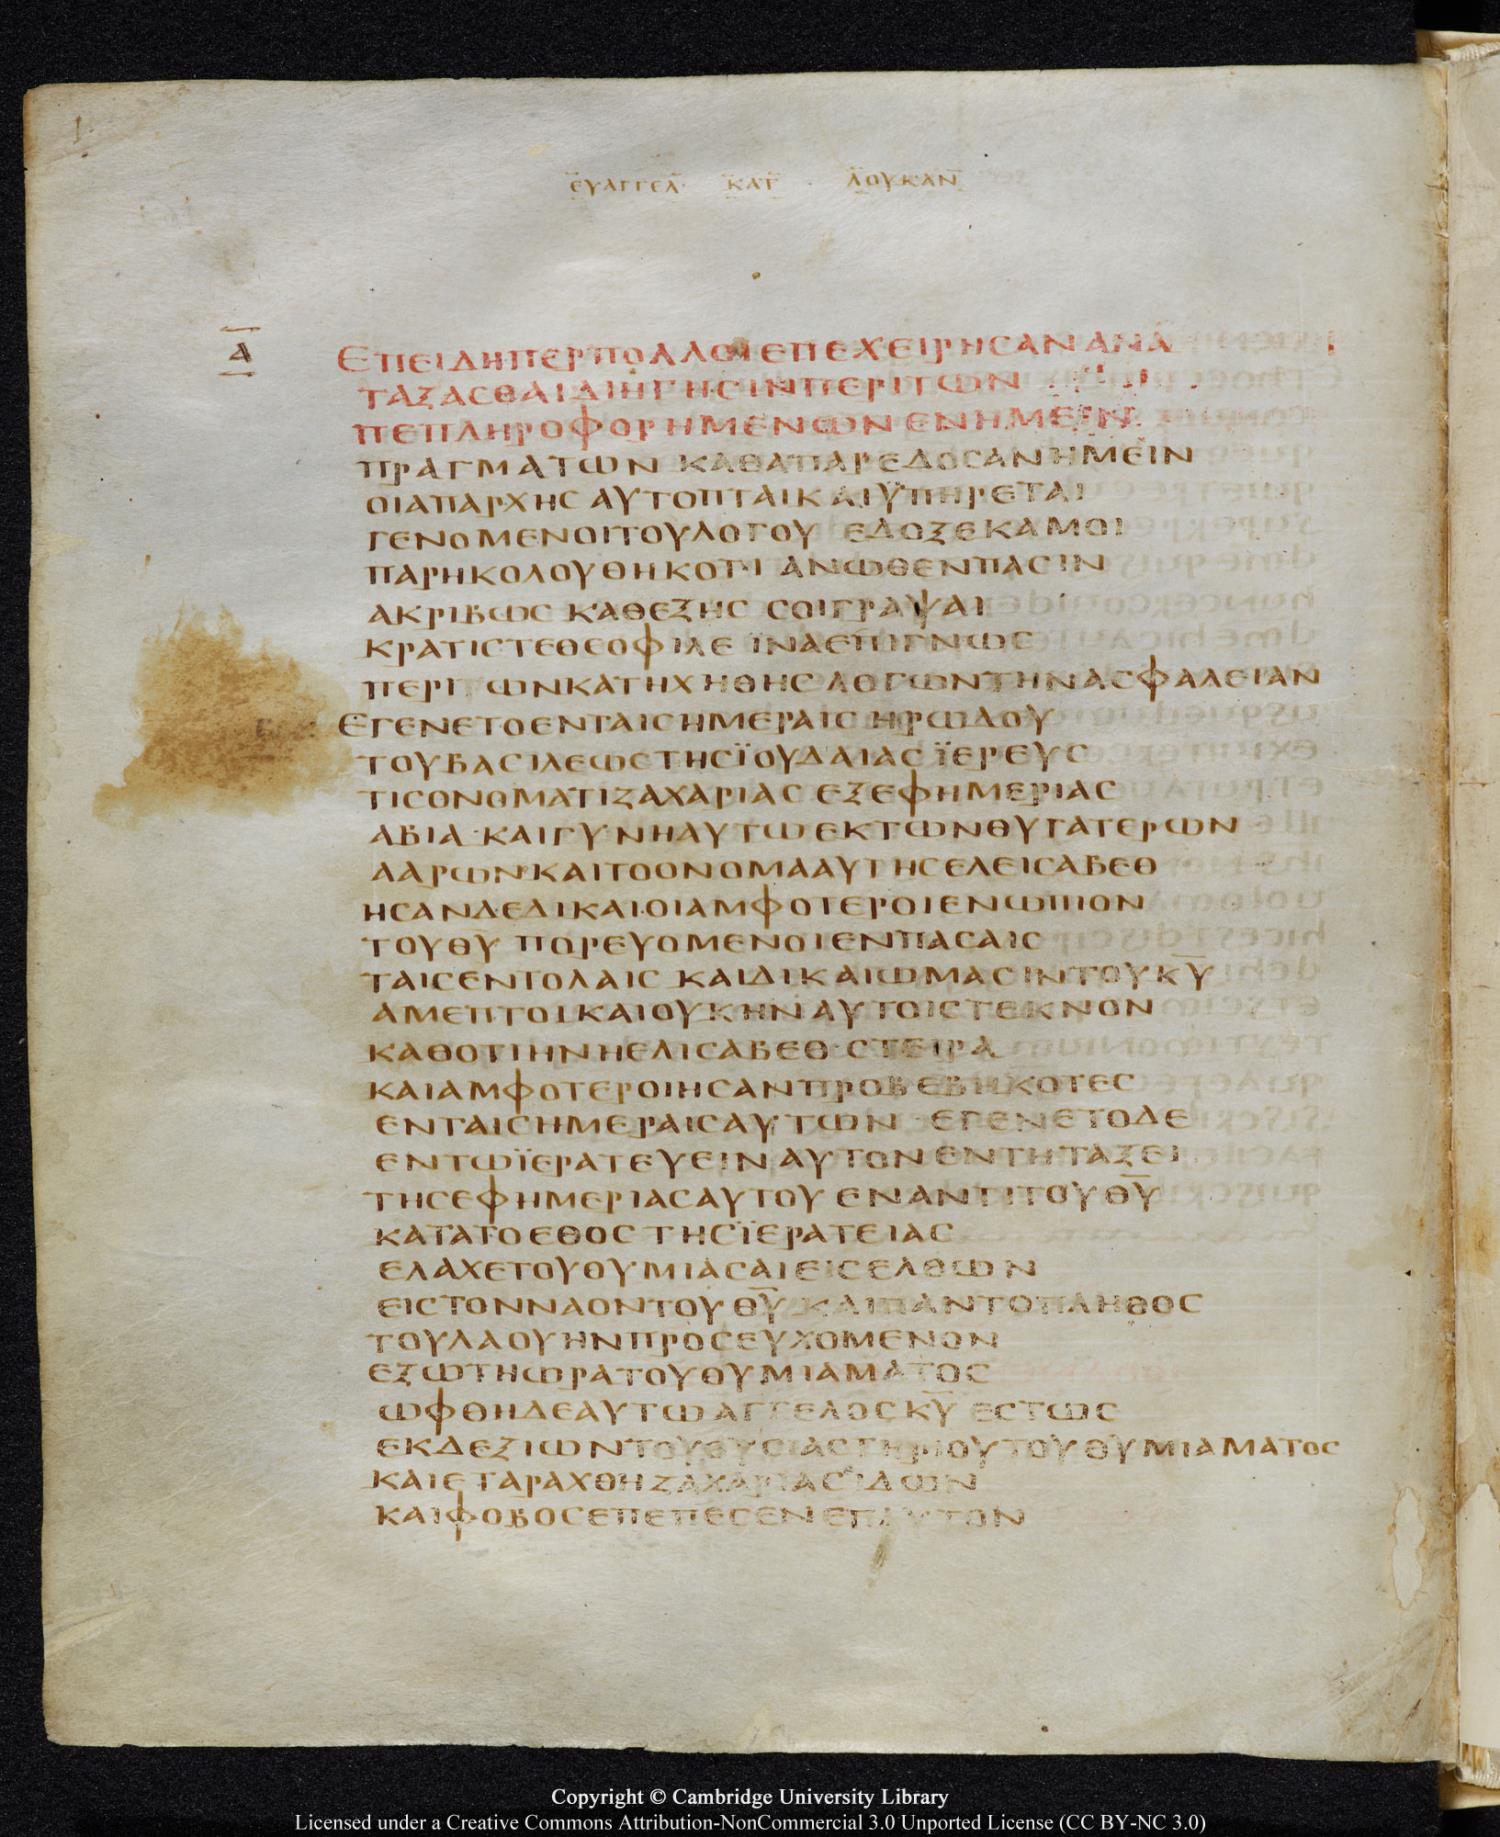 ΕΥΑΓΓΕΛ ΚΑΤ ΛΟΥΚΑΝ
Α
ΕΠΕΙΔΗΠΕΡΠΟΛΛΟΙΕΠΕΧΕΙΡΗСΑΝΑΝΑ
ΤΑΞΑСΘΑΙΔΙΗΓΗСΙΝΠΕΡΙΤΩΝ
ΠΕΠΛΗΡΟΦΟΡΗΜΕΝΩΝΕΝΗΜΕΙΝ
ΠΡΑΓΜΑΤΩΝ ΚΑΘΑΠΑΡΕΔΟСΑΝΗΜΕΙΝ
ΟΙΑΠΑΡΧΗС ΑΥΤΟΠΤΑΙΚΑΙΫΠΗΡΕΤΑΙ
ΓΕΝΟΜΕΝΟΙΤΟΥΛΟΓΟΥ ΕΔΟΞΕΚΑΜΟΙ
ΠΑΡΗΚΟΛΟΥΘΗΚΟΤΙ ΑΝΩΘΕΝΠΑСΙΝ
ΑΚΡΙΒΩС ΚΑΘΕΞΗС СΟΙΓΡΑΨΑΙ
ΚΡΑΤΙСΤΕΘΕΟΦΙΛΕ ΪΝΑΕΠΙΓΝΩС
ΠΕΡΙ ΩΝΚΑΤΗΧΗΘΗС ΛΟΓΩΝΤΗΝΑСΦΑΛΕΙΑΝ
ΕΓΕΝΕΤΟΕΝΤΑΙСΗΜΕΡΑΙС ΗΡΩΔΟΥ
ΤΟΥΒΑСΙΛΕΩСΤΗСΪΟΥΔΑΙΑС ΪΕΡΕΥС
ΤΙСΟΝΟΜΑΤΙΖΑΧΑΡΙΑС ΕΞΕΦΗΜΕΡΙΑС
ΑΒΙΑ·ΚΑΙΓΥΝΗΑΥΤΩ ΕΚΤΩΝΘΥΓΑΤΕΡΩΝ
ΑΑΡΩΝ·ΚΑΙΤΟΟΝΟΜΑΑΥΤΗСΕΛΕΙСΑΒΕΘ
ΗСΑΝΔΕΔΙΚΑΙΟΙΑΜΦΟΤΕΡΟΙΕΝΩΠΙΟΝ
ΤΟΥΘΥ ΠΟΡΕΥΟΜΕΝΟΙΕΝΠΑСΑΙС
ΤΑΙСΕΝΤΟΛΑΙС ΚΑΙΔΙΚΑΙΩΜΑСΙΝΤΟΥΚΥ̅
ΑΜΕΠΤΟΙΚΑΙΟΥΚΗΝΑΥΤΟΙСΤΕΚΝΟΝ
ΚΑΘΟΤΙΗΝΗΕΛΙСΑΒΕΘ·СΤΕΙΡΑ
ΚΑΙΑΜΦΟΤΕΡΟΙΗСΑΝΠΡΟΒΕΒΗΚΟΤΕС
ΕΝΤΑΙСΗΜΕΡΑΙСΑΥΤΩΝ ΕΓΕΝΕΤΟΔΕ
ΕΝΤΩΪΕΡΑΤΕΥΕΙΝ ΑΥΤΟΝΕΝΤΗΤΑΞΕΙ
ΤΗСΕΦΗΜΕΡΙΑСΑΥΤΟΥ ΕΝΑΝΤΙΤΟΥΘΥ̅
ΚΑΤΑΤΟΕΘΟС ΤΗСΪΕΡΑΤΕΙΑС
ΕΛΑΧΕΤΟΥΘΥΜΙΑСΑΙΕΙСΕΛΘΩΝ
ΕΙСΤΟΝΝΑΟΝΤΟΥ ΘΥ̅ ΚΑΙΠΑΝΤΟΠΛΗΘΟС
ΤΟΥΛΑΟΥΗΝΠΡΟСΕΥΧΟΜΕΝΟΝ
ΕΞΩΤΗΩΡΑΤΟΥΘΥΜΙΑΜΑΤΟС
ΩΦΘΗΔΕΑΥΤΩ ΑΓΓΕΛΟС ΚΥ̅ ΕСΤΩС
ΕΚΔΕΞΙΩΝΤΟΥΘΥСΙΑСΤΗΡΙΟΥΤΟΥΘΥΜΙΑΜΑΤΟС
ΚΑΙΕΤΑΡΑΧΘΗΖΑΧΑΡΙΑСΪΔΩΝ
ΚΑΙΦΟΒΟСΕΠΕΠΕСΕΝΕΠΑΥΤΟΝ
Copyright © Cambridge University Library
Licensed under a Creative Commons Attribution-NonCommercial 3.0 Unported License (CC BY-NC 3.0)